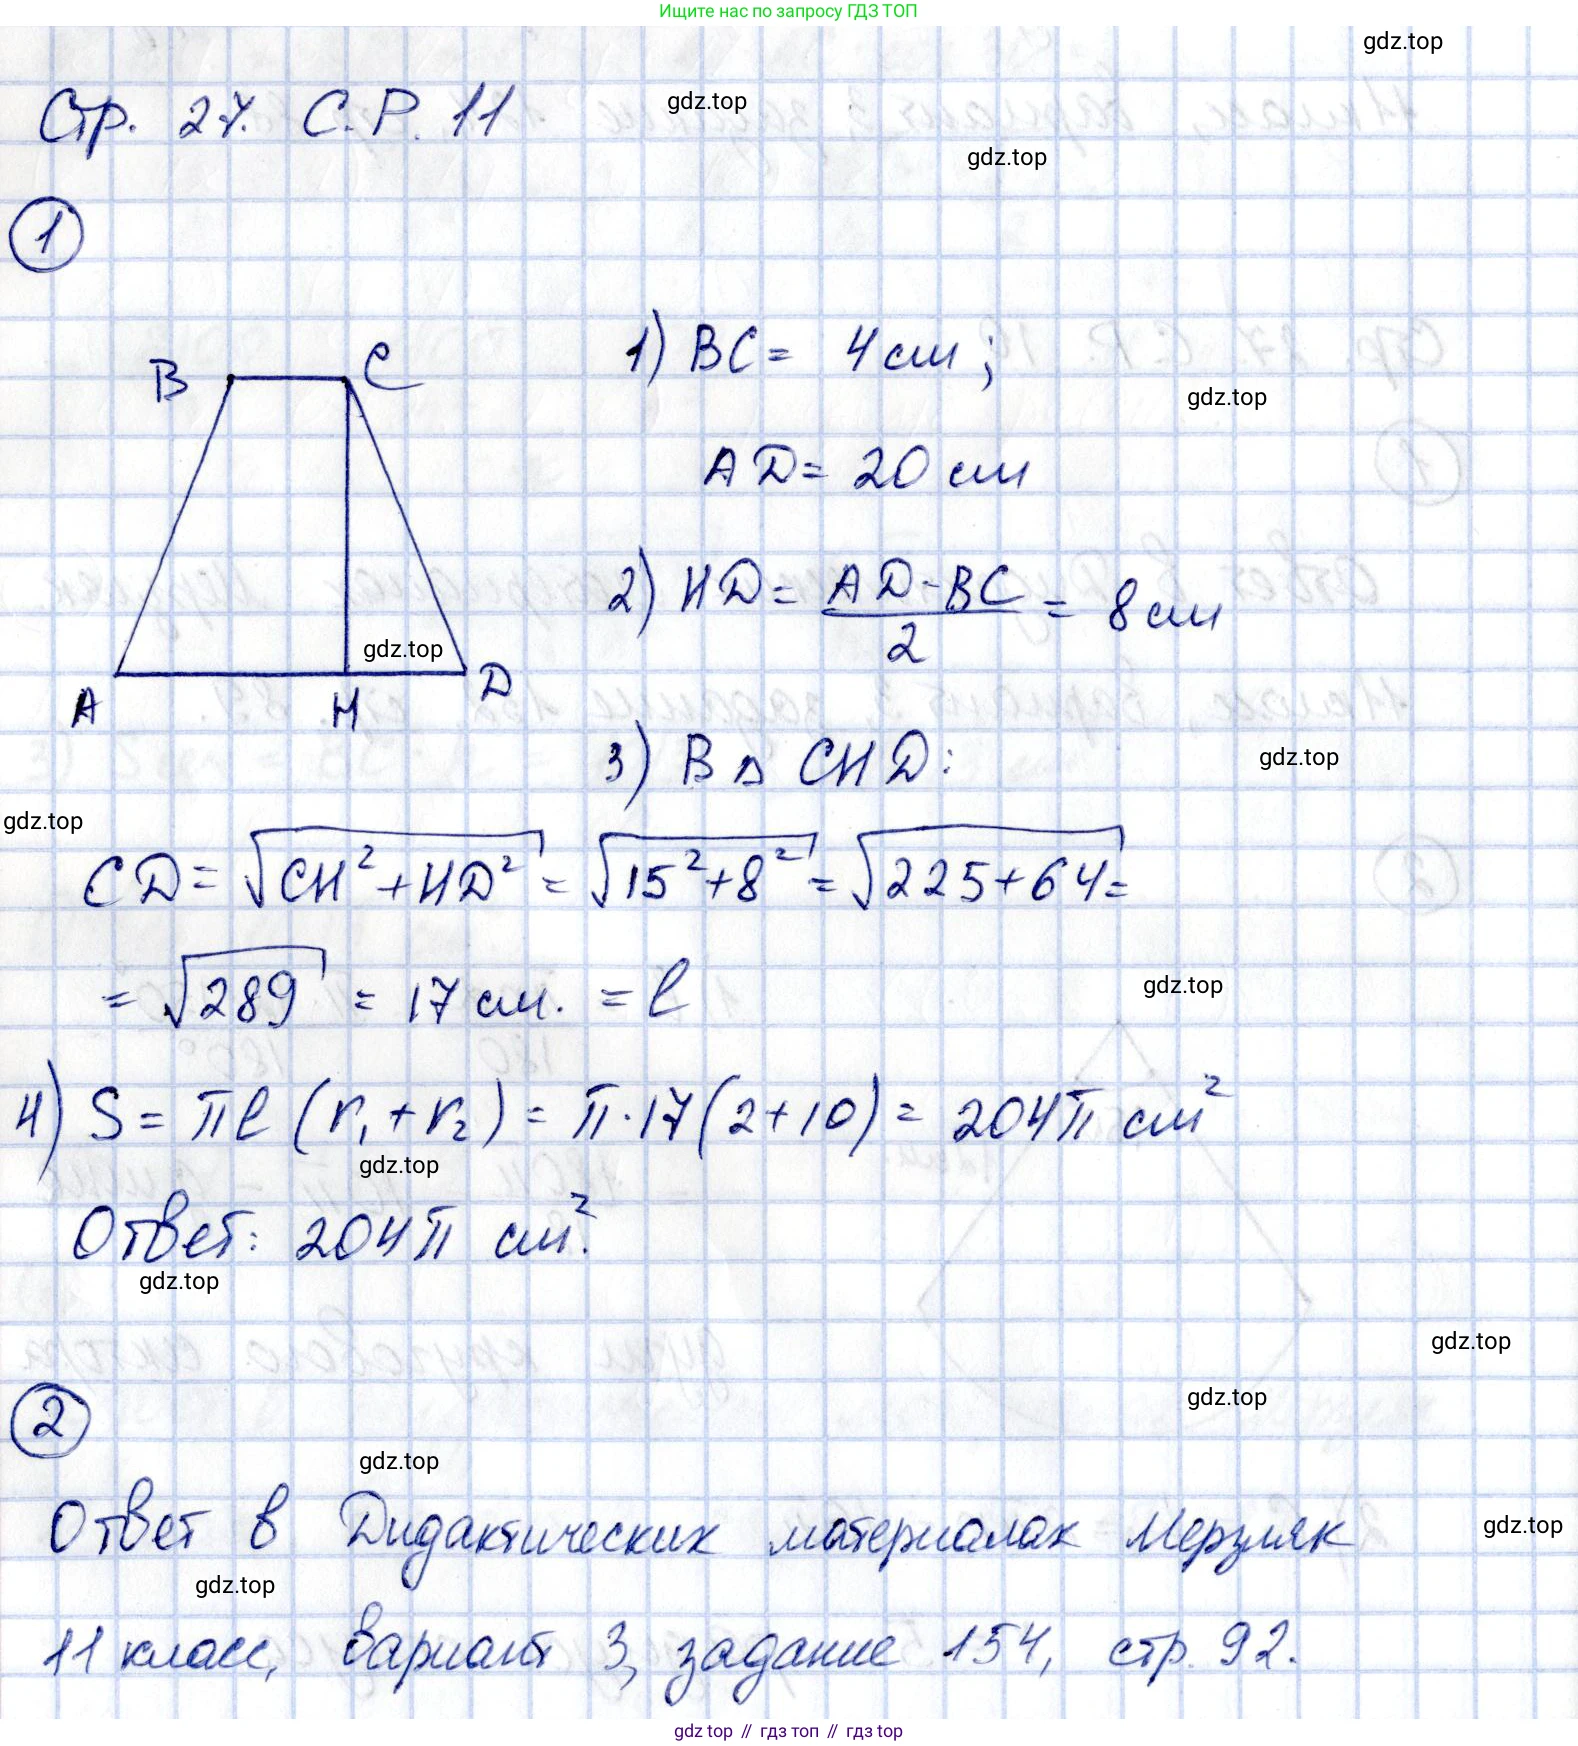 Ищите нас по запросу ГДЗ ТОП
gdz.top
Стр. 27. С.Р. 11
gdz.top
gdz.top
1
B C
1) BC = 4 см;
gdz.top
AD = 20 см
2) HD = (AD - BC)/2 = 8 см
gdz.top
A H D
3) В △ CHD:
gdz.top
gdz.top
CD = √(CH² + HD²) = √(15² + 8²) = √(225 + 64) =
= √289 = 17 см. = l
gdz.top
4) S = πl (r₁ + r₂) = π · 17 (2 + 10) = 204π см²
gdz.top
Ответ: 204π см².
gdz.top
gdz.top
gdz.top
2
gdz.top
Ответ в Дидактических материалах Мерзляк
gdz.top
gdz.top
11 класс, вариант 3, задание 154, стр. 92.
gdz.top // гдз топ // гдз top